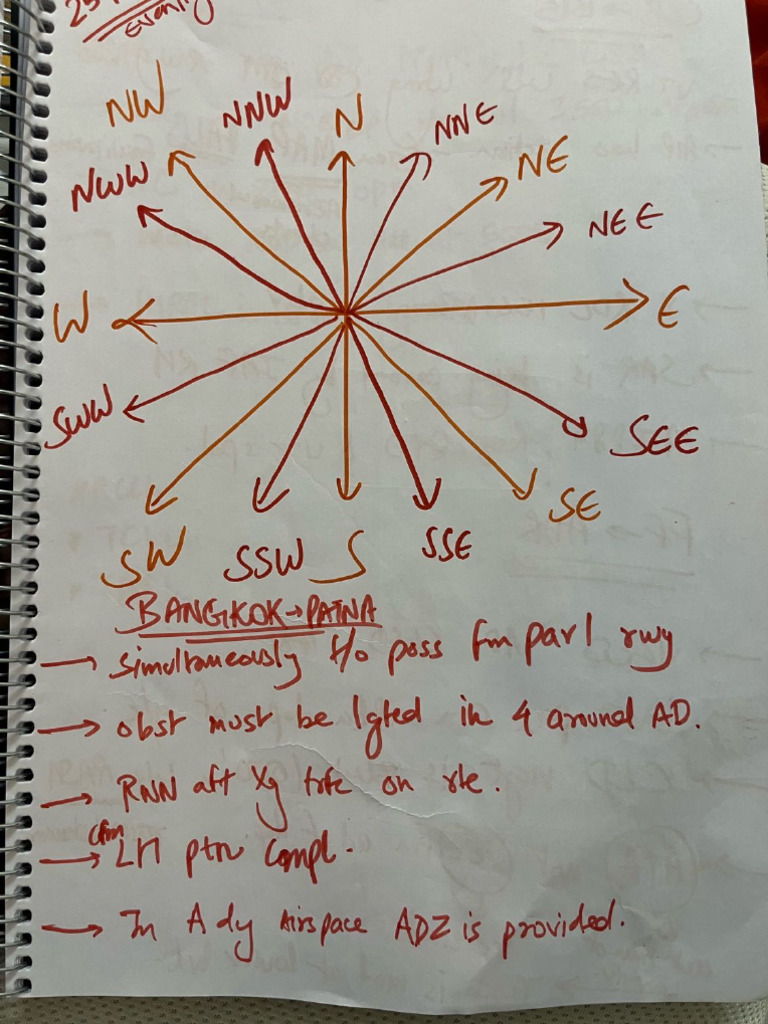 evening
NW NNW N NNE
NWW NE
NEE
W E
SWW SEE
SW SSW S SSE SE
BANGKOK→PATNA
→ simultaneously t/o poss fm parl rwy
→ obst must be lgted in & around AD.
→ RNN aft Xg trfc on rte.
cfm
→ LH ptn compl.
→ In A dy Airspace ADZ is provided.